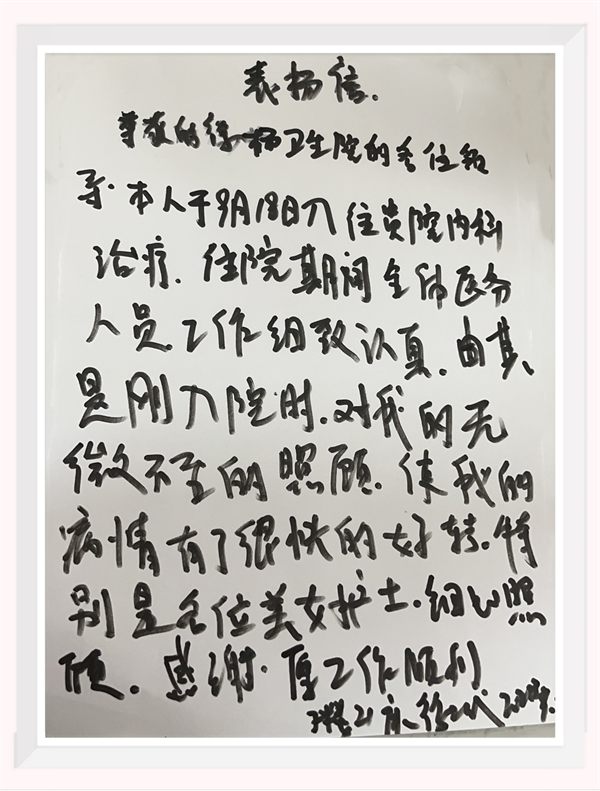 表扬信.
尊敬的徐杨卫生院的各位领
导.本人于9月18日入住贵院内科
治疗.住院期间全体医务
人员.工作细致认真.由其
是刚入院时.对我的无
微不至的照顾.使我的
病情有了很快的好转.特
别是各位美女护士.细心照
顾.感谢.
工作顺利
21床徐